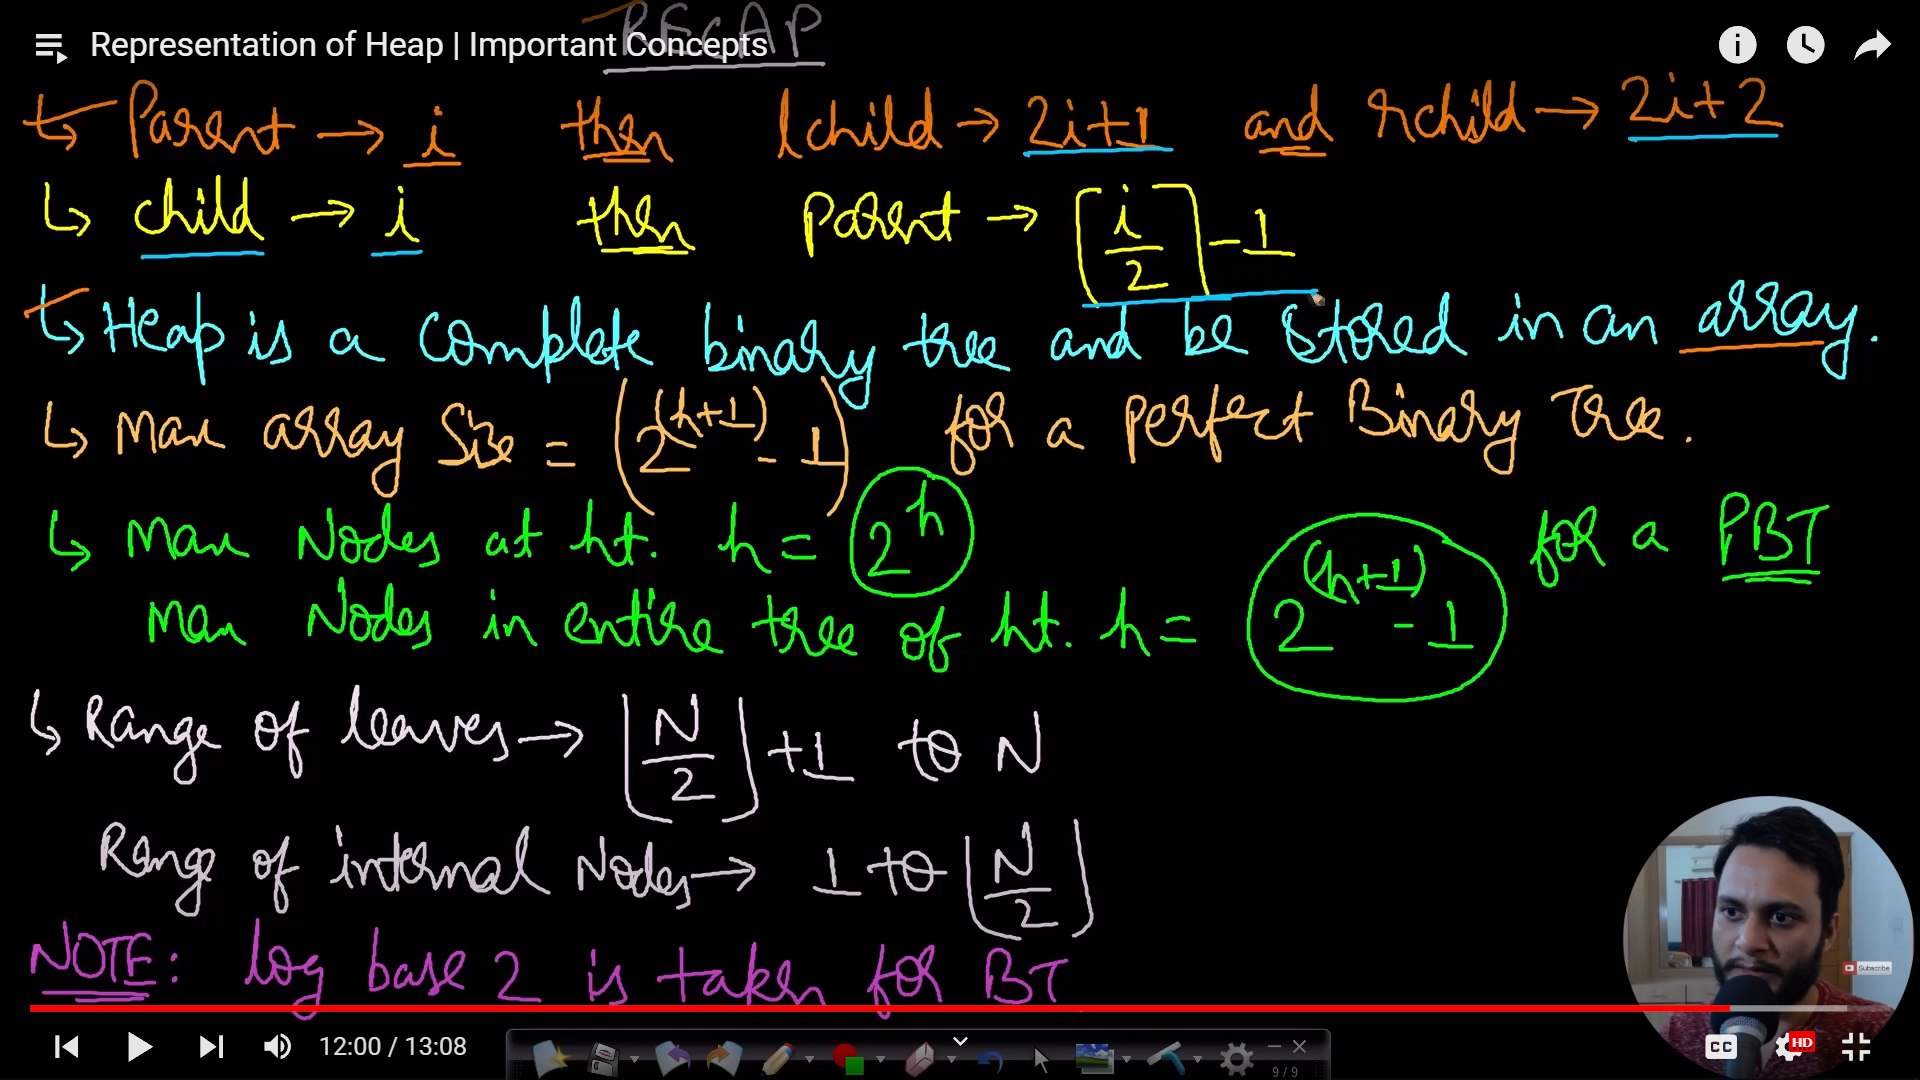 RECAP
Representation of Heap | Important Concepts
↳ Parent → i then lchild → 2i+1 and rchild → 2i+2
↳ child → i then parent → ⌈i/2⌉ - 1
↳ Heap is a complete binary tree and be stored in an array.
↳ Max array size = (2^(h+1) - 1) for a perfect Binary Tree.
↳ Max Nodes at ht. h = 2^h
Max Nodes in entire tree of ht. h = 2^(h+1) - 1 for a PBT
↳ Range of leaves → ⌊N/2⌋ + 1 to N
Range of internal Nodes → 1 to ⌊N/2⌋
NOTE: log base 2 is taken for BT
Subscribe
12:00 / 13:08
CC
HD
9 / 9